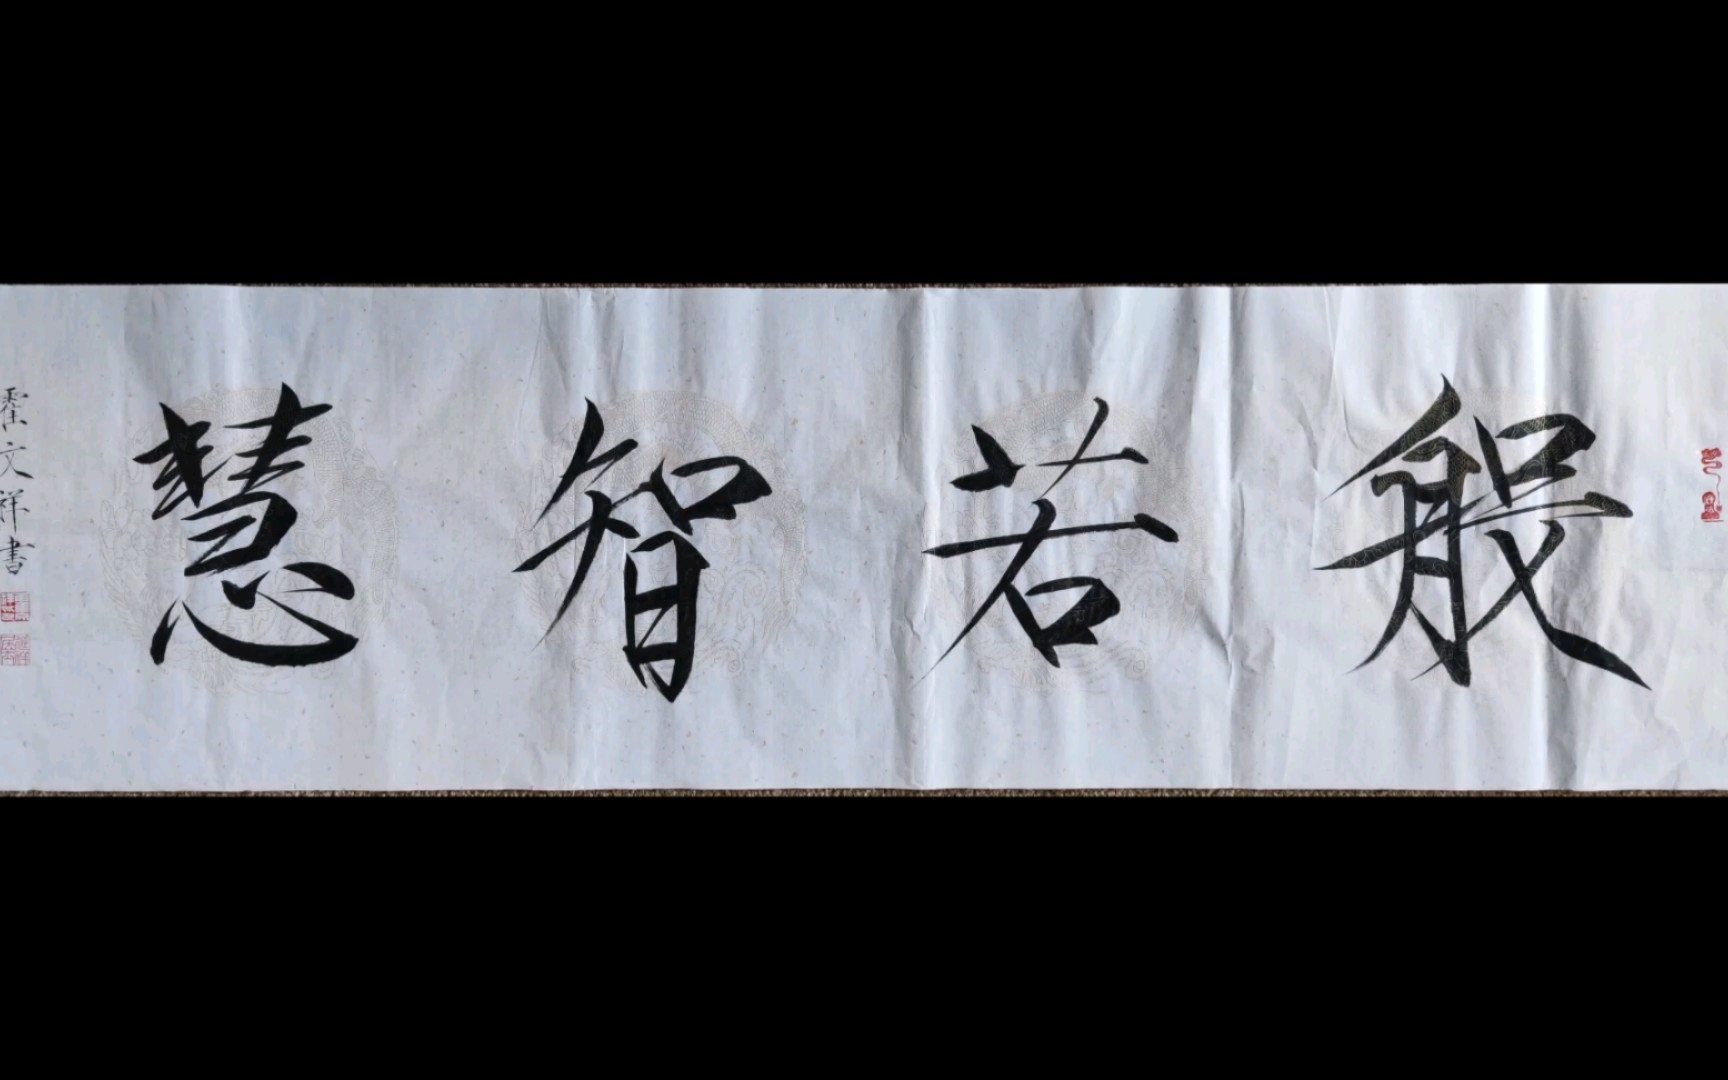 般若智慧
霍文祥書